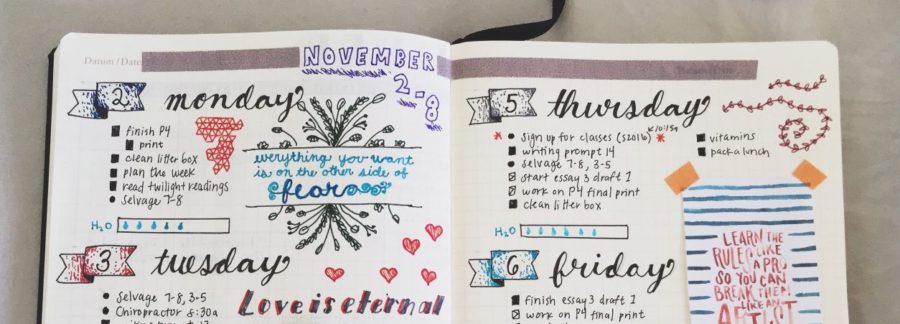 Datum / Date
NOVEMBER
2-8
2 monday
finish P4
print
clean litter box
plan the week
read twilight readings
Selvage 7-8
H2O
everything you want
is on the other side of
fear
3 tuesday
Selvage 7-8, 3-5
Chiropractor 8:30a
Love is eternal
5 thursday
sign up for classes (S2016)
writing prompt 14
Selvage 7-8, 3-5
start essay 3 draft 1
work on P4 final print
clean litter box
H2O
vitamins
pack a lunch
6 friday
finish essay 3 draft 1
work on P4 final print
LEARN THE
RULES LIKE
A PRO
SO YOU CAN
BREAK THEM
LIKE AN
ARTIST